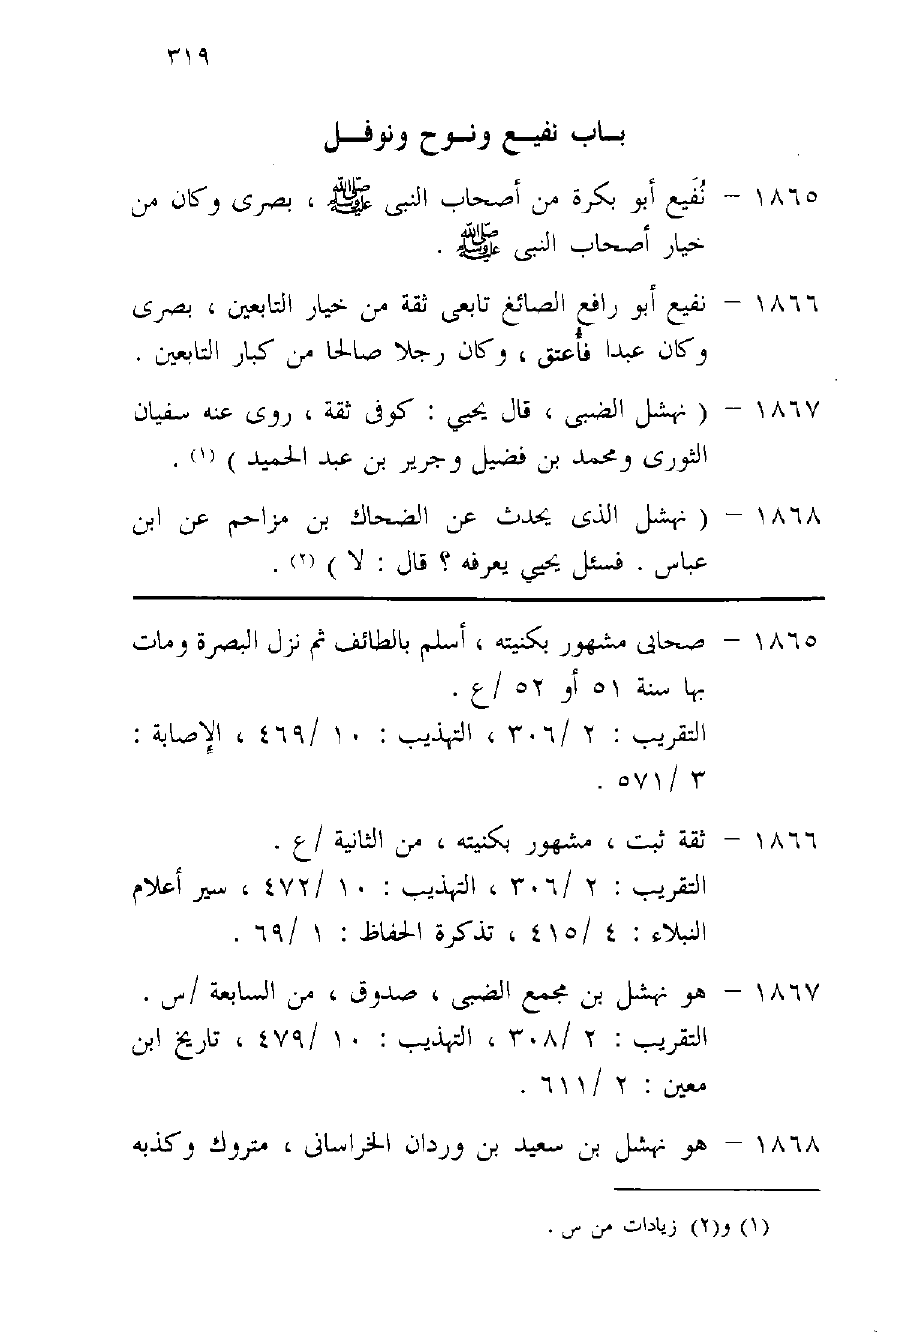 ٣١٩
باب نفيع ونوح ونوفل
١٨٦٥ – نُفَيع أبو بكرة من أصحاب النبى ﷺ ، بصرى وكان من
خيار أصحاب النبى ﷺ .
١٨٦٦ – نفيع أبو رافع الصائغ تابعى ثقة من خيار التابعين ، بصرى
وكان عبدا فأُعتق ، وكان رجلا صالحا من كبار التابعين .
١٨٦٧ – ( نهشل الضبى ، قال يحيي : كوفى ثقة ، روى عنه سفيان
الثورى ومحمد بن فضيل وجرير بن عبد الحميد ) (١) .
١٨٦٨ – ( نهشل الذى يحدث عن الضحاك بن مزاحم عن ابن
عباس . فسئل يحيي يعرفه ؟ قال : لا ) (٢) .
١٨٦٥ – صحابى مشهور بكنيته ، أسلم بالطائف ثم نزل البصرة ومات
بها سنة ٥١ أو ٥٢ /ع .
التقريب : ٢ /٣٠٦ ، التهذيب : ١٠ /٤٦٩ ، الإصابة :
٣ /٥٧١ .
١٨٦٦ – ثقة ثبت ، مشهور بكنيته ، من الثانية /ع .
التقريب : ٢ /٣٠٦ ، التهذيب : ١٠ /٤٧٢ ، سير أعلام
النبلاء : ٤ /٤١٥ ، تذكرة الحفاظ : ١ /٦٩ .
١٨٦٧ – هو نهشل بن مجمع الضبى ، صدوق ، من السابعة /س .
التقريب : ٢ /٣٠٨ ، التهذيب : ١٠ /٤٧٩ ، تاريخ ابن
معين : ٢ /٦١١ .
١٨٦٨ – هو نهشل بن سعيد بن وردان الخراسانى ، متروك وكذبه
(١) و(٢) زيادات من س .